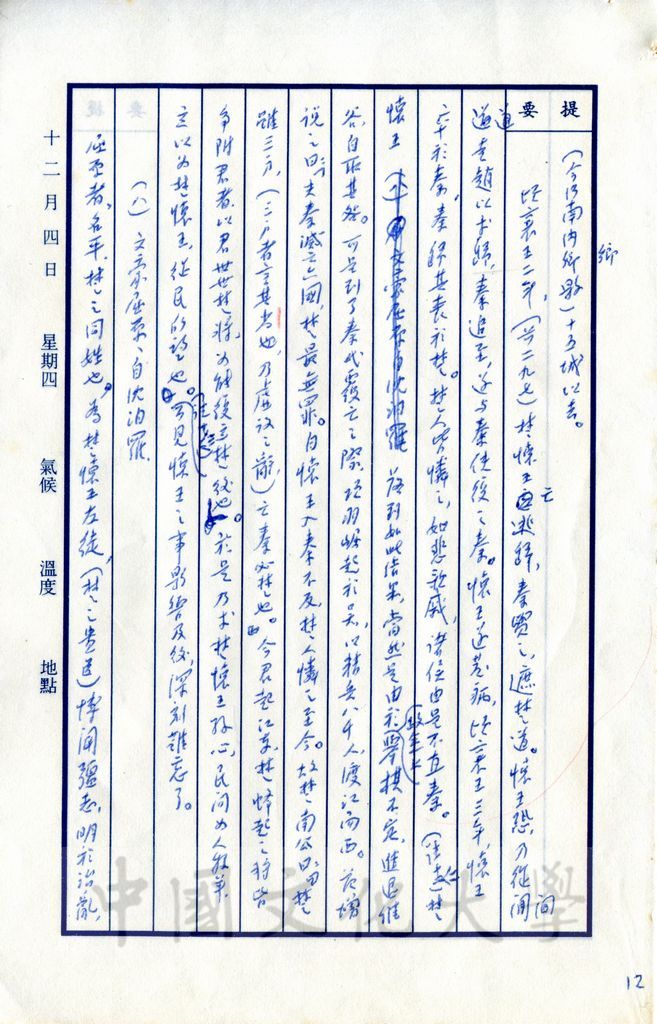 提要
（今河南內鄉縣）十五城以去。
頃襄王二年，（前二九七）楚懷王亡逃歸，秦覺之，遮楚道。懷王恐，乃從間
道走趙以求歸，秦追至，遂與秦使復之秦。懷王遂發病，頃襄王三年，懷王
卒於秦，秦歸其喪於楚。楚人皆憐之，如悲親戚，諸侯由是不直秦。
懷王落到如此結果，當然是由於舉棋不定，進退維
谷，自取其咎。可是到了秦代覆亡之際，項羽崛起於吳，以精兵八千人，渡江而西。范增
說之曰：「夫秦滅六國，楚最無罪。自懷王入秦不反，楚人憐之至今。故楚南公曰：『楚
雖三戶，（三戶者言其少也，乃虛設之辭）亡秦必楚也。』今君起江東，楚蜂起之將皆
爭附君者，以君世世楚將，為能復立楚後也。於是乃求楚懷王孫心，民間為人牧羊，
立以為楚懷王，從民所望也。可見懷王之事影響及後，深刻難忘了。
（八）文豪屈原自沈汨羅
屈原者，名平，楚之同姓也，為楚懷王左徒，（楚之貴臣）博聞彊志，明於治亂，
十二月四日 星期四 氣候 溫度 地點
中國文化大學
12